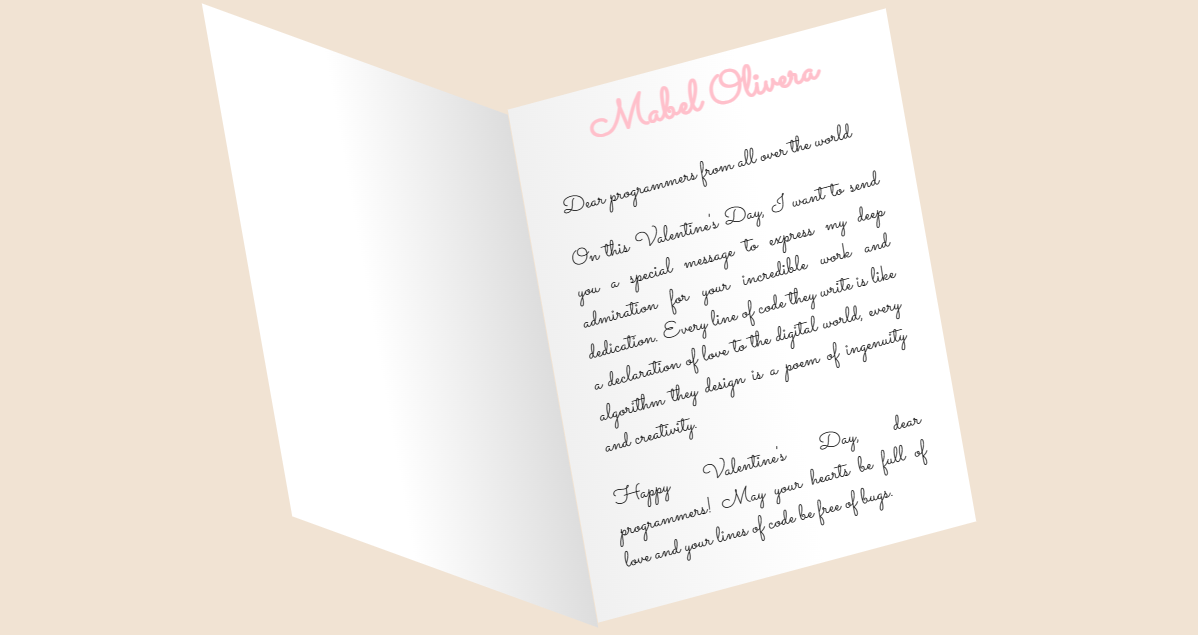 Mabel Olivera
Dear programmers from all over the world
On this Valentine's Day, I want to send
you a special message to express my deep
admiration for your incredible work and
dedication. Every line of code they write is like
a declaration of love to the digital world, every
algorithm they design is a poem of ingenuity
and creativity.
Happy Valentine's Day, dear
programmers! May your hearts be full of
love and your lines of code be free of bugs.